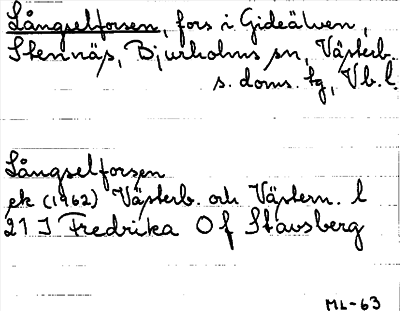 Långselforsen, fors i Gideälven,
Stennäs, Bjurholms sn, Västerb.
s. doms. tg, Vb. l.
Långselforsen
ek (1962) Västerb. och Västern. l
21 I Fredrika O f Stavsberg
ML-63